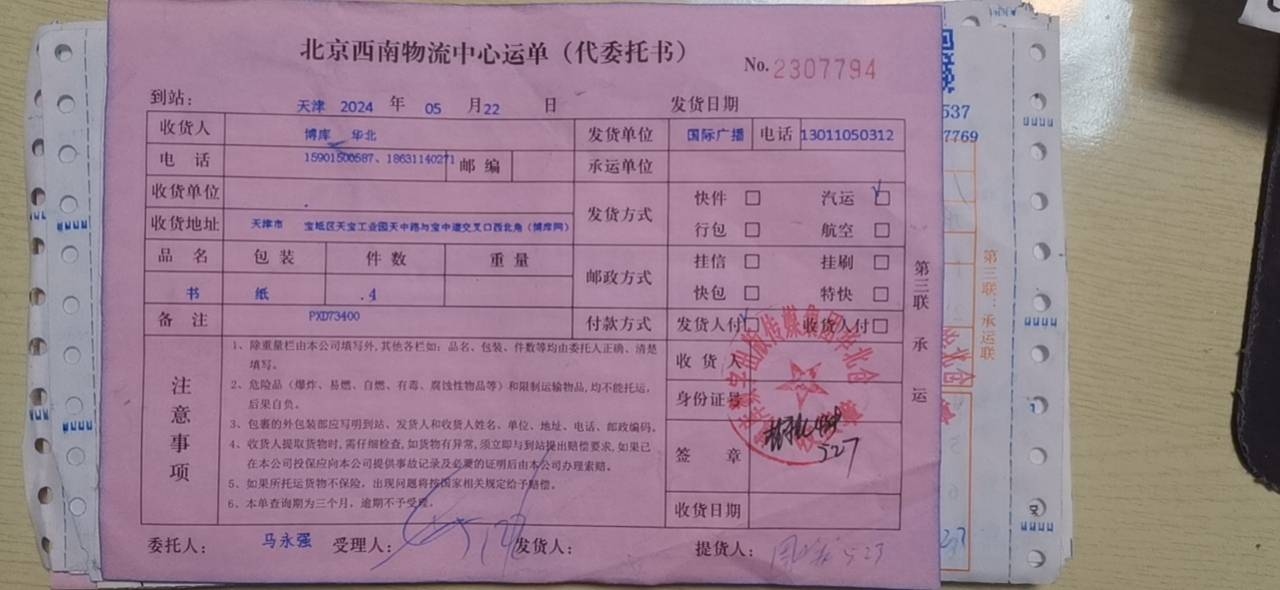 北京西南物流中心运单（代委托书）
No. 2307794
到站： 天津 2024 年 05 月 22 日 发货日期
收货人 博库 华北 发货单位 国际广播 电话 13011050312
电话 15901500587、18631140271 邮编 承运单位
收货单位
收货地址 天津市 宝坻区天宝工业园天中路与宝中道交叉口西北角（博库网）
发货方式 快件 □ 汽运 □
行包 □ 航空 □
品名 包装 件数 重量
邮政方式 挂信 □ 挂刷 □
快包 □ 特快 □
书 纸 4
备注 PXD73400 付款方式 发货人付 □ 收货人付 □
注意事项
1、除重量栏由本公司填写外,其他各栏如：品名、包装、件数等均由委托人正确、清楚
填写。
2、危险品（爆炸、易燃、自燃、有毒、腐蚀性物品等）和限制运输物品,均不能托运,
后果自负。
3、包裹的外包装部应写明到站、发货人和收货人姓名、单位、地址、电话、邮政编码。
4、收货人提取货物时,需仔细检查,如货物有异常,须立即与到站提出赔偿要求,如果已
在本公司投保应向本公司提供事故记录及必要的证明后由本公司办理索赔。
5、如果所托运货物不保险，出现问题将按国家相关规定给予赔偿。
6、本单查询期为三个月，逾期不予受理。
收货人
身份证号
签章
527
收货日期
委托人： 马永强 受理人： 发货人： 提货人： 527
第三联 承运
第三联：承运联
537
7769